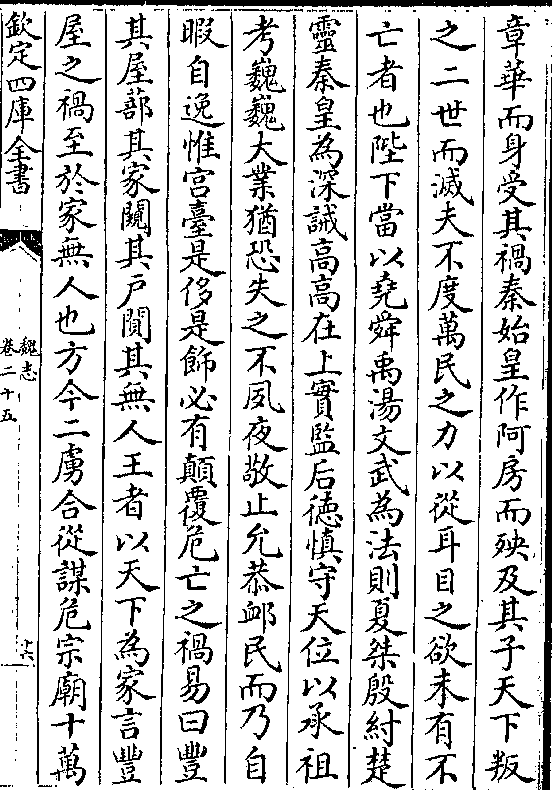 章華而身受其禍秦始皇作阿房而殃及其子天下叛
之二世而滅夫不度萬民之力以從耳目之欲未有不
亡者也陛下當以堯舜禹湯文武為法則夏桀殷紂楚
靈秦皇為深誡高高在上實監后徳慎守天位以承祖
考巍巍大業猶恐失之不夙夜敬止允恭䘏民而乃自
暇自逸惟宫臺是侈是飾必有顛覆危亡之禍易曰豐
其屋蔀其家闚其户闃其無人王者以天下為家言豐
屋之禍至於家無人也方今二虜合從謀危宗廟十萬
欽定四庫全書
魏志
卷二十五
十六